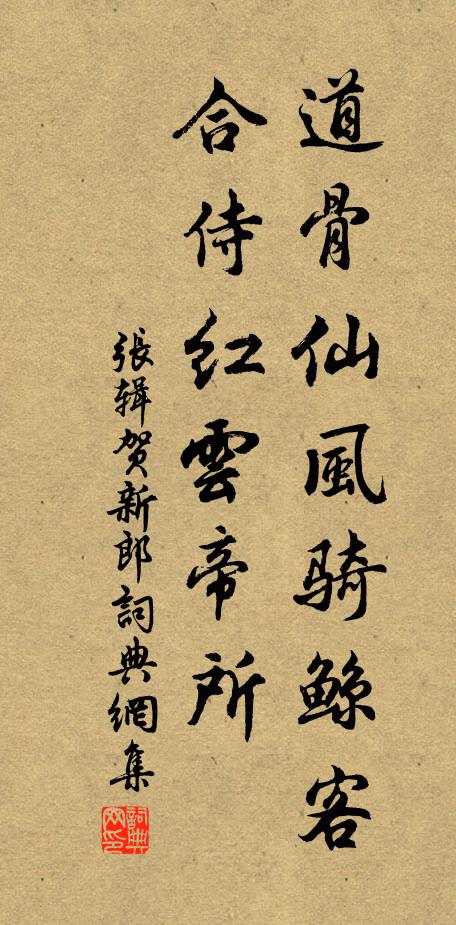 道骨仙風騎鲸客
合侍紅雲帝所
張辑賀新郎詞典網集
詞典网印